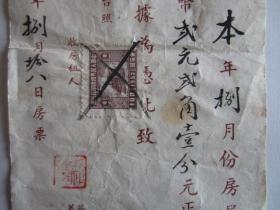 本年捌月份房
幣貳元貳角壹分元正
據為憑此致
台照
收房租人
年捌月拾八日房票